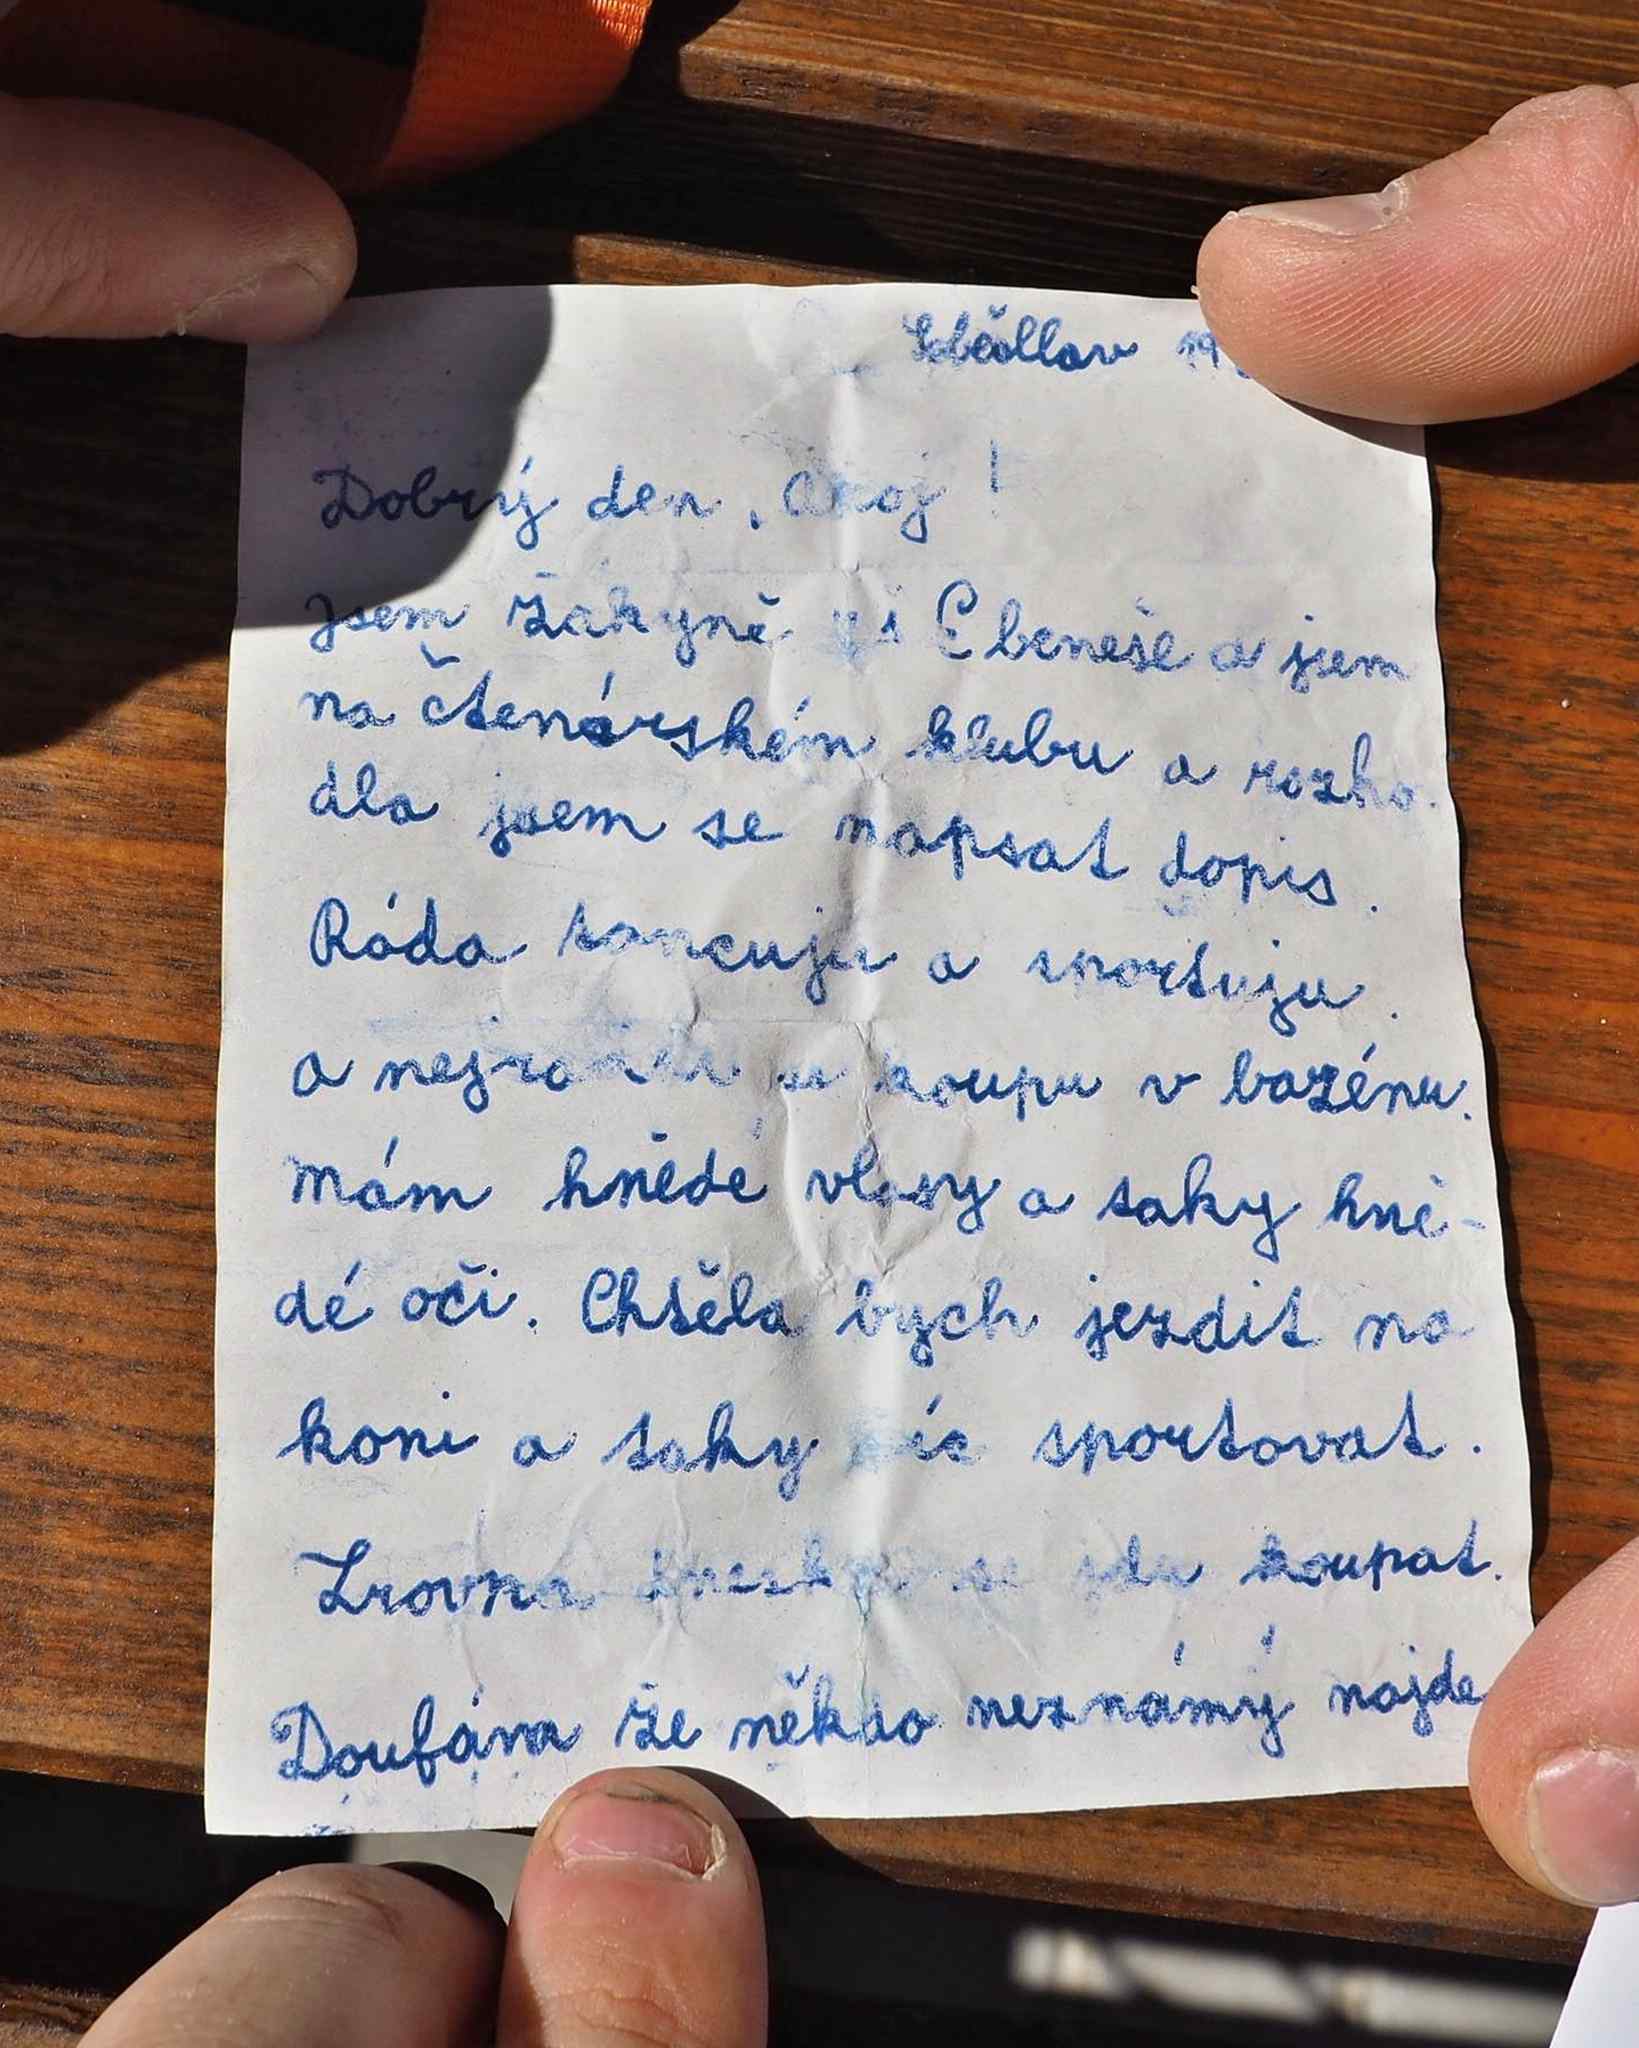 19
Dobrý den, Ahoj!
Jsem žákyně zš E beneše a jsem
na čtenárském klubu a rozho-
dla jsem se napsat dopis.
Ráda tancuju a sportuju.
a nejraděi se koupu v bazénu.
mám hnědé vlasy a taky hně-
dé oči. Chtěla bych jezdit na
koni a taky víc sportovat.
Zrovna dneska se jdu koupat.
Doufáma že někdo neznámý najde